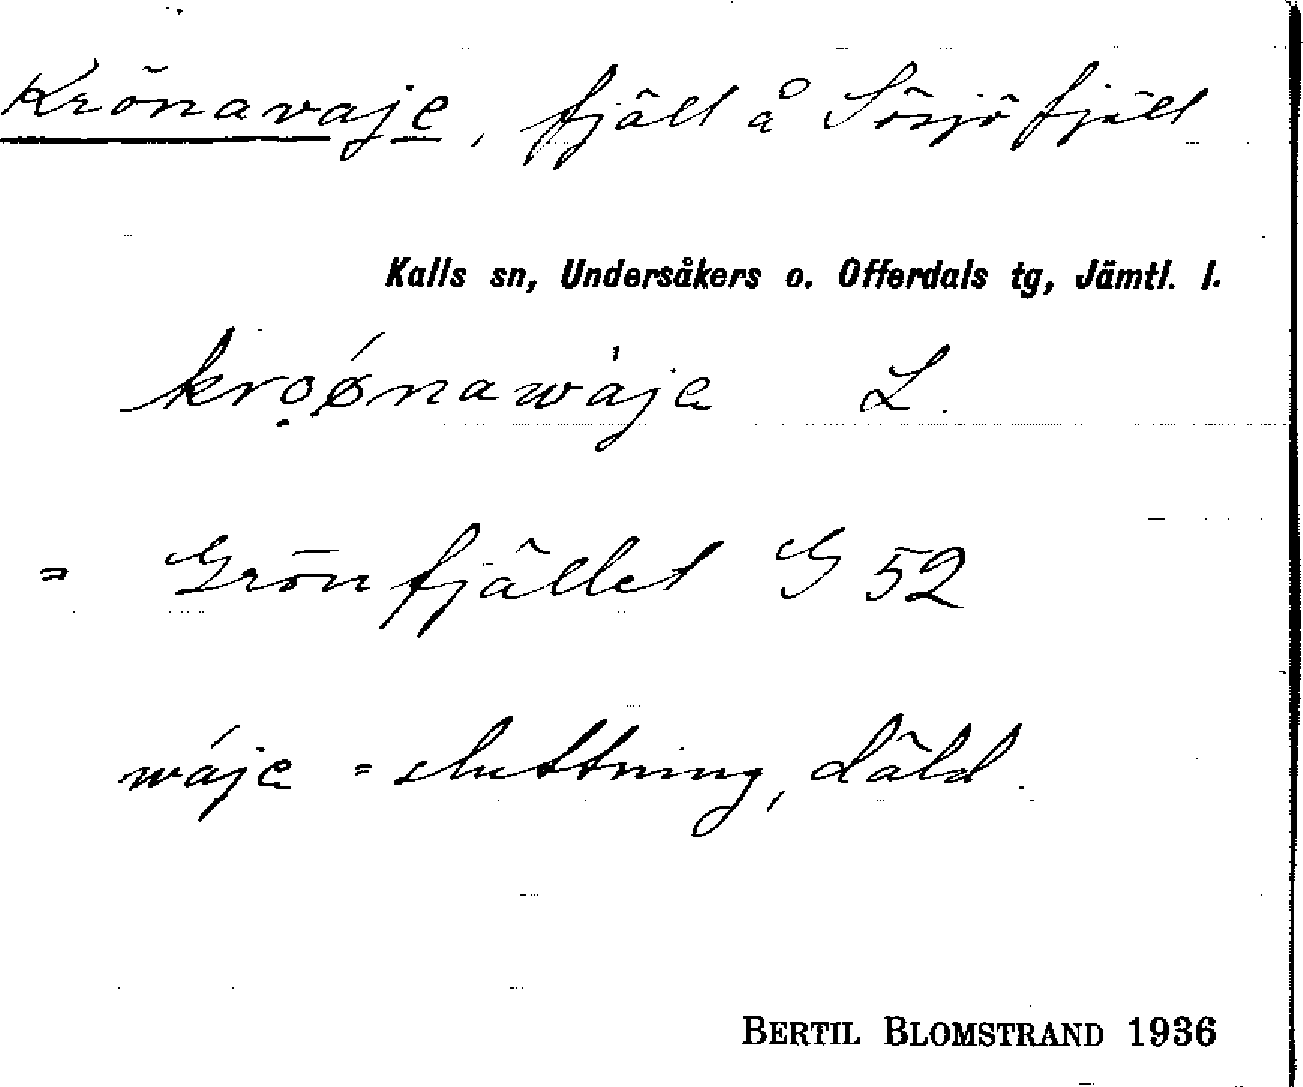 Krönavaje, fjäll å Sösjöfjäll
Kalls sn, Undersåkers o. Offerdals tg, Jämtl. l.
krọǿnawàja L.
= Grönfjället G 52
wája = sluttning, däld.
BERTIL BLOMSTRAND 1936